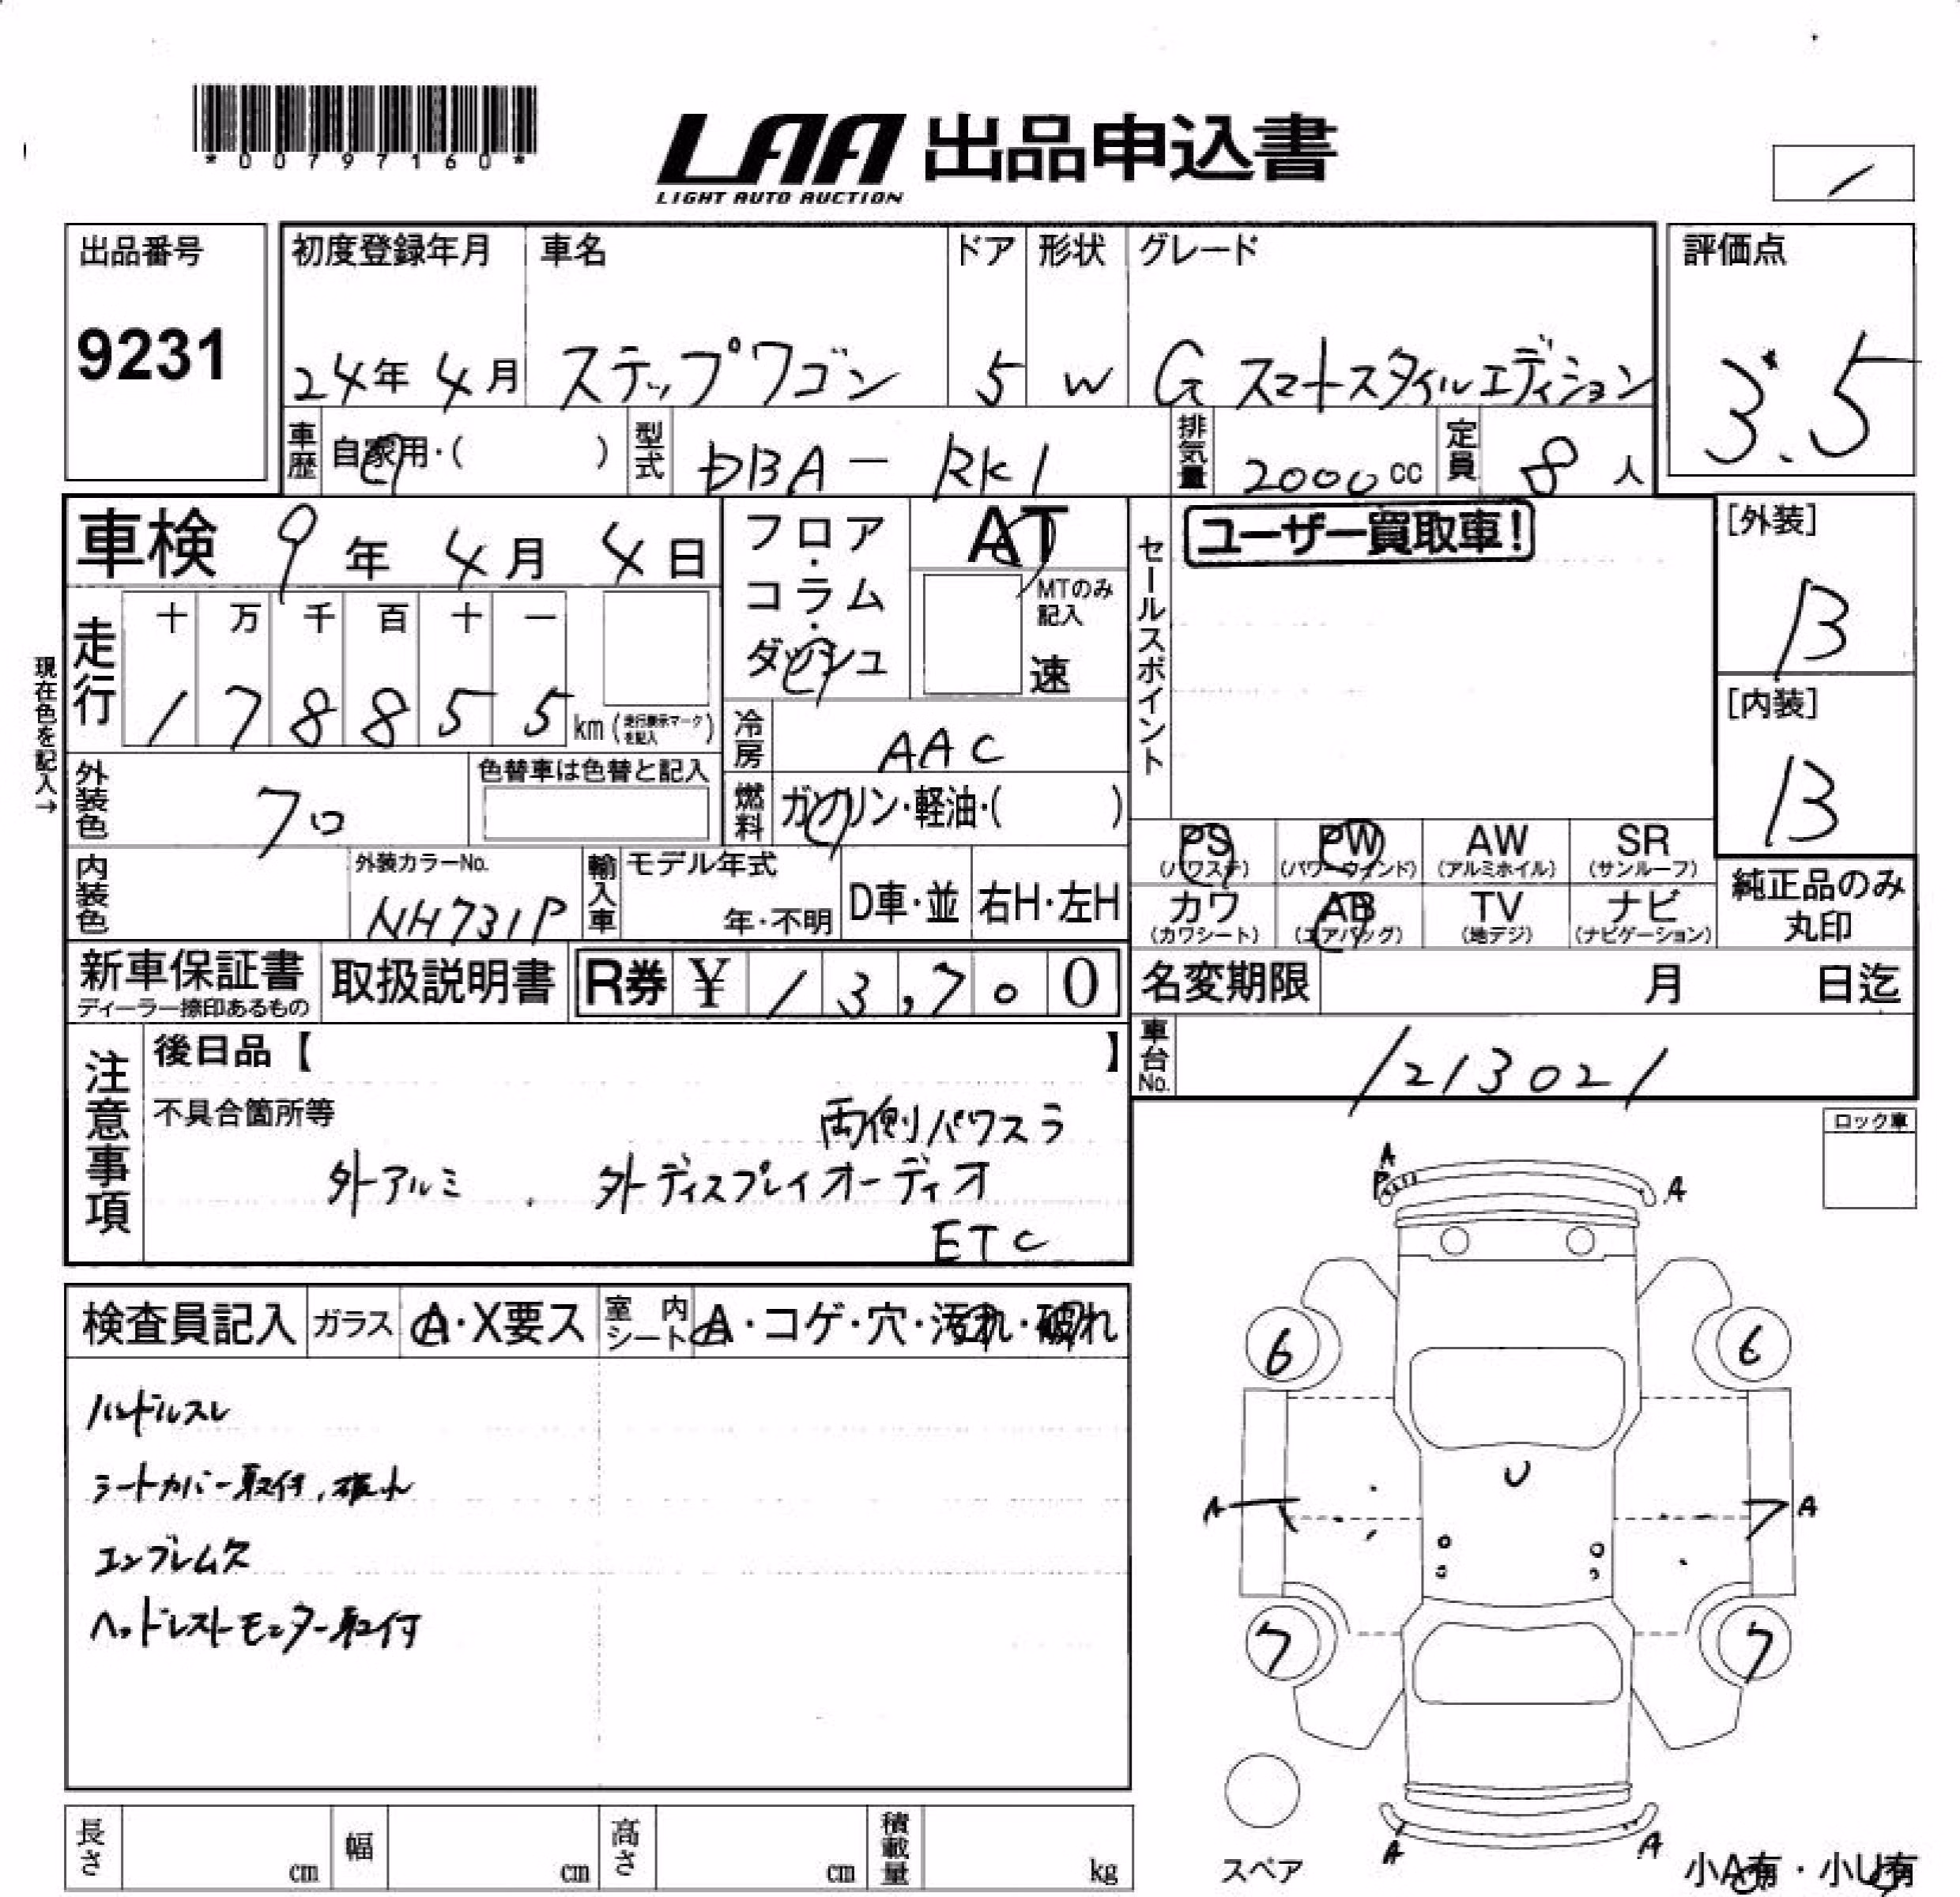 *00797160*
LAA 出品申込書
LIGHT AUTO AUCTION
出品番号
9231
初度登録年月
24年 4月
車名
ステップワゴン
ドア
5
形状
W
グレード
G スマートスタイルエディション
評価点
3.5
車歴
自家用・( )
型式
DBA-RK1
排気量
2000cc
定員
8人
車検 9年 4月 4日
フロア・コラム・ダッシュ
AT
MTのみ記入
速
セールスポイント
ユーザー買取車!
[外装]
B
[内装]
B
現在色を記入→
走行
十 万 千 百 十 一
1 7 8 8 5 5 km (走行表示マークを記入)
冷房
AAC
外装色
クロ
色替車は色替と記入
燃料
ガソリン・軽油・( )
PS (パワステ)
PW (パワーウインド)
AW (アルミホイル)
SR (サンルーフ)
カワ (カワシート)
AB (エアバッグ)
TV (地デジ)
ナビ (ナビゲーション)
純正品のみ丸印
内装色
外装カラーNo.
NH731P
輸入車
モデル年式
年・不明
D車・並
右H・左H
新車保証書
ディーラー捺印あるもの
取扱説明書
R券 ¥ 13,700
名変期限 月 日迄
車台No.
1213021
注意事項
後日品【 】
不具合箇所等
両側パワスラ
外アルミ . 外ディスプレイオーディオ
ETC
ロック車
検査員記入
ガラス A・X要ス
室内シート A・コゲ・穴・汚れ・破れ
ハンドルスレ
シートカバー取付,破れ
エンブレム欠
ヘッドレストモニター取付
A
P
A
6
6
U
A
A
7
7
A
A
スペア
小A有・小U有
長さ cm
幅 cm
高さ cm
積載量 kg